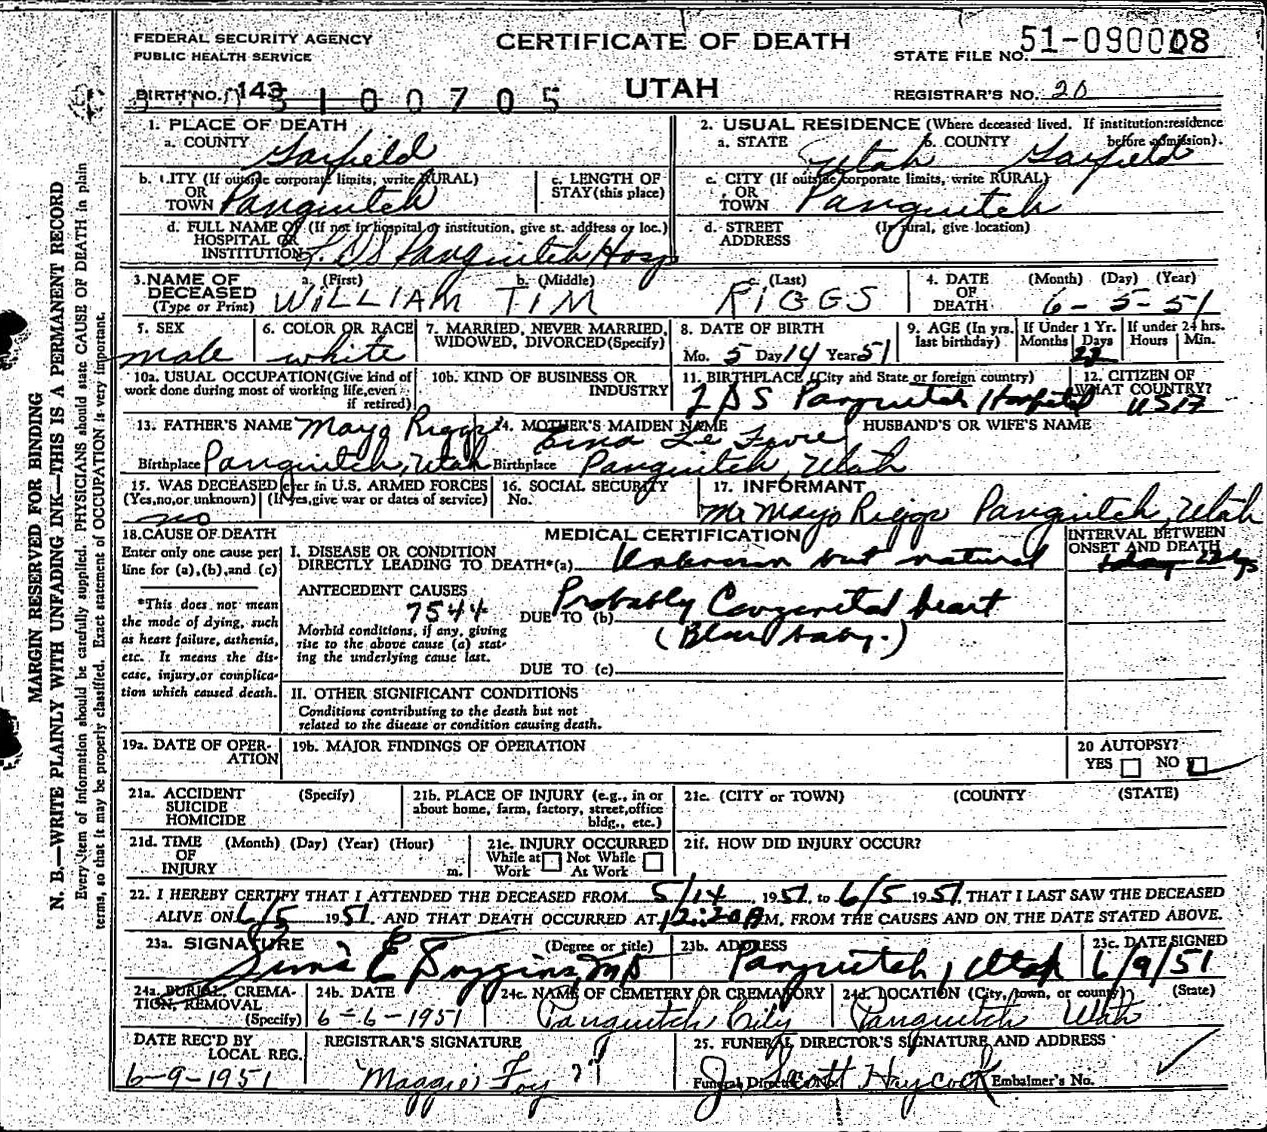 FEDERAL SECURITY AGENCY
PUBLIC HEALTH SERVICE
CERTIFICATE OF DEATH
UTAH
STATE FILE NO. 51-090008
REGISTRAR'S NO. 20
BIRTH NO. 143
5100705
MARGIN RESERVED FOR BINDING
N. B.—WRITE PLAINLY WITH UNFADING INK—THIS IS A PERMANENT RECORD
Every item of information should be carefully supplied. PHYSICIANS should state CAUSE OF DEATH in plain
terms, so that it may be properly classified. Exact statement of OCCUPATION is very important.
1. PLACE OF DEATH
a. COUNTY Garfield
b. CITY (If outside corporate limits, write RURAL)
OR
TOWN Panguitch
c. LENGTH OF
STAY (this place)
d. FULL NAME OF (If not in hospital or institution, give st. address or loc.)
HOSPITAL OR
INSTITUTION LDS Panguitch Hosp
2. USUAL RESIDENCE (Where deceased lived. If institution:residence
before admission).
a. STATE Utah b. COUNTY Garfield
c. CITY (If outside corporate limits, write RURAL)
OR
TOWN Panguitch
d. STREET (If rural, give location)
ADDRESS
3. NAME OF a. (First) b. (Middle) c. (Last)
DECEASED
(Type or Print) WILLIAM TIM RIGGS
4. DATE (Month) (Day) (Year)
OF
DEATH 6-5-51
5. SEX
male
6. COLOR OR RACE
white
7. MARRIED, NEVER MARRIED,
WIDOWED, DIVORCED (Specify)
8. DATE OF BIRTH
Mo. 5 Day 14 Year 51
9. AGE (In yrs.
last birthday)
If Under 1 Yr.
Months Days
22
If under 24 hrs.
Hours Min.
10a. USUAL OCCUPATION (Give kind of
work done during most of working life, even
if retired)
10b. KIND OF BUSINESS OR
INDUSTRY
11. BIRTHPLACE (City and State or foreign country)
LDS Panguitch Hospital
12. CITIZEN OF
WHAT COUNTRY?
USA
13. FATHER'S NAME Mayo Riggs
Birthplace Panguitch, Utah
14. MOTHER'S MAIDEN NAME
Le Fevre
Birthplace Panguitch, Utah
HUSBAND'S OR WIFE'S NAME
15. WAS DECEASED ever in U.S. ARMED FORCES
(Yes, no, or unknown) (If yes, give war or dates of service)
no
16. SOCIAL SECURITY
No.
17. INFORMANT
Mr Mayo Riggs Panguitch, Utah
18. CAUSE OF DEATH
Enter only one cause per
line for (a), (b), and (c)
*This does not mean
the mode of dying, such
as heart failure, asthenia,
etc. It means the dis-
ease, injury, or complica-
tion which caused death.
MEDICAL CERTIFICATION
I. DISEASE OR CONDITION
DIRECTLY LEADING TO DEATH*(a) Unknown but natural
ANTECEDENT CAUSES
7544
Morbid conditions, if any, giving
rise to the above cause (a) stat-
ing the underlying cause last.
DUE TO (b) Probably Congenital heart
(Blue baby.)
DUE TO (c)
INTERVAL BETWEEN
ONSET AND DEATH
II. OTHER SIGNIFICANT CONDITIONS
Conditions contributing to the death but not
related to the disease or condition causing death.
19a. DATE OF OPER-
ATION
19b. MAJOR FINDINGS OF OPERATION
20 AUTOPSY?
YES NO
21a. ACCIDENT (Specify)
SUICIDE
HOMICIDE
21b. PLACE OF INJURY (e.g., in or
about home, farm, factory, street, office
bldg., etc.)
21c. (CITY or TOWN) (COUNTY) (STATE)
21d. TIME (Month) (Day) (Year) (Hour)
OF
INJURY m.
21e. INJURY OCCURRED
While at Not While
Work At Work
21f. HOW DID INJURY OCCUR?
22. I HEREBY CERTIFY THAT I ATTENDED THE DECEASED FROM 5/14 1951, to 6/5 1951, THAT I LAST SAW THE DECEASED
ALIVE ON 6/5 1951, AND THAT DEATH OCCURRED AT 12:20 A M. FROM THE CAUSES AND ON THE DATE STATED ABOVE.
23a. SIGNATURE (Degree or title)
Sims E Duggins, MD
23b. ADDRESS
Panguitch, Utah
23c. DATE SIGNED
6/9/51
24a. BURIAL, CREMA-
TION, REMOVAL
(Specify)
24b. DATE
6-6-1951
24c. NAME OF CEMETERY OR CREMATORY
Panguitch City
24d. LOCATION (City, town, or county) (State)
Panguitch Utah
DATE REC'D BY
LOCAL REG.
6-9-1951
REGISTRAR'S SIGNATURE
Maggie Foy
25. FUNERAL DIRECTOR'S SIGNATURE AND ADDRESS
J. Scott Haycock
Funeral Director's No. Embalmer's No.